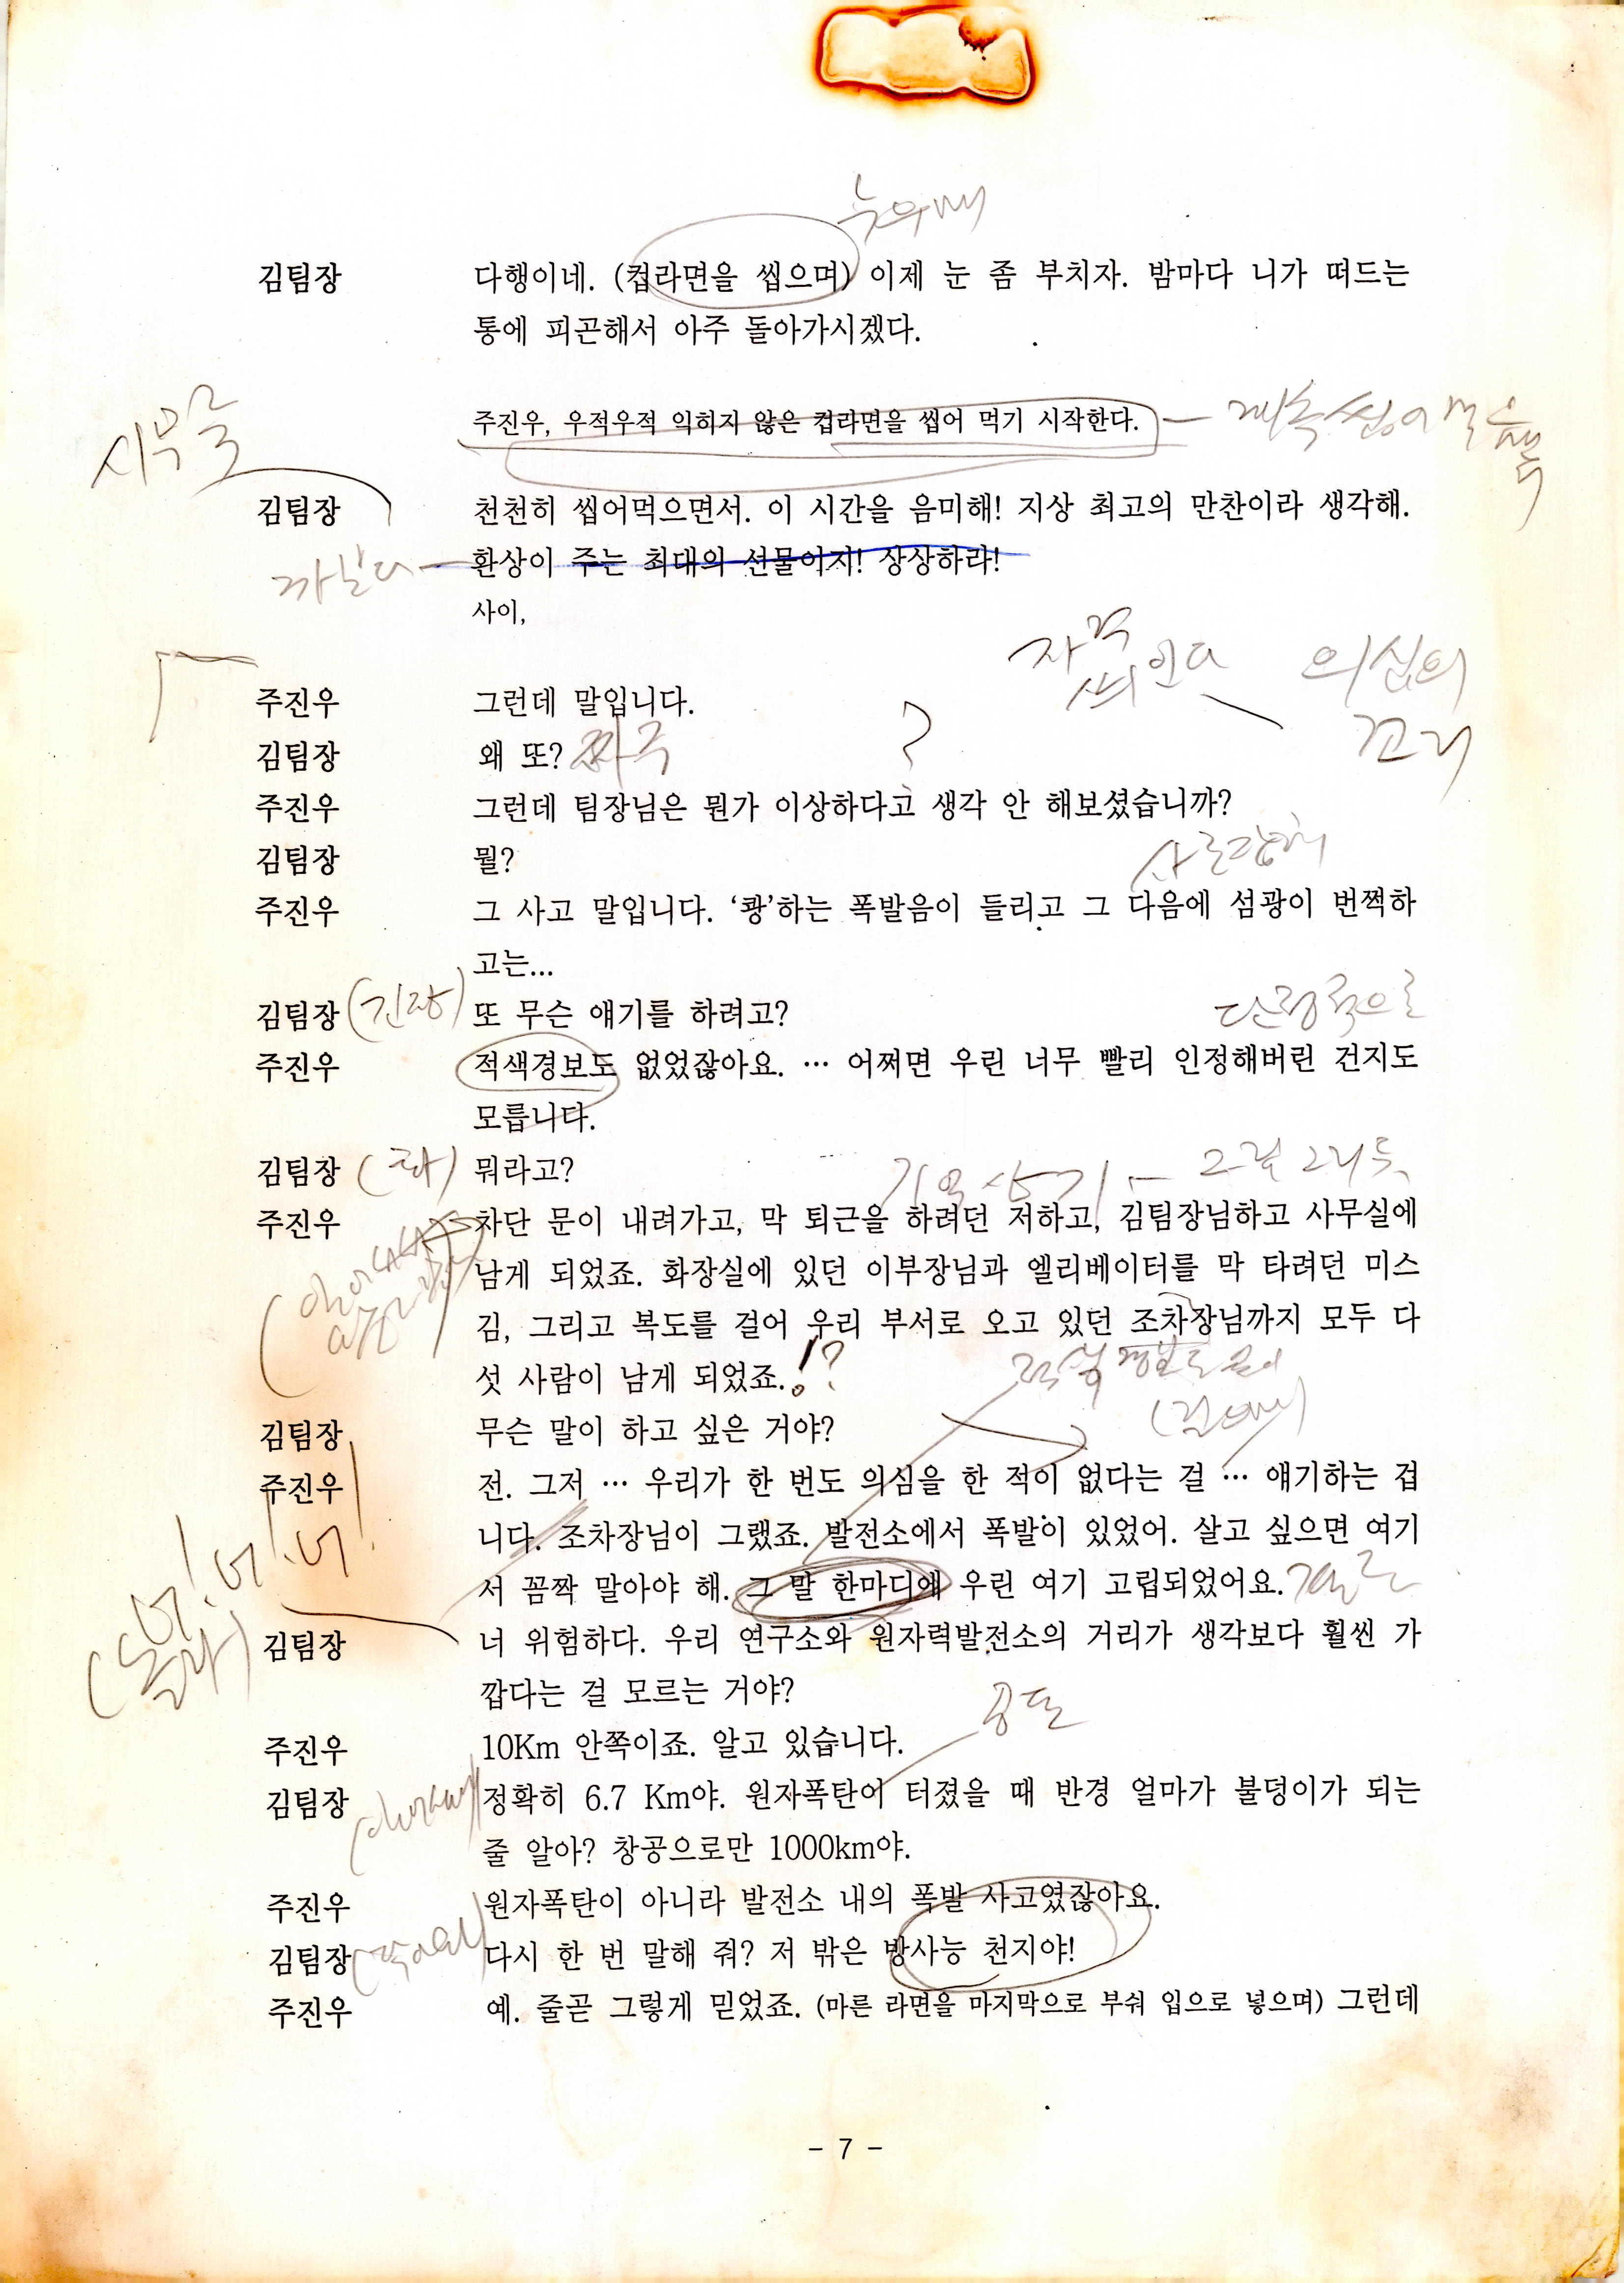 누우며
김팀장 다행이네. (컵라면을 씹으며) 이제 눈 좀 부치자. 밤마다 니가 떠드는
통에 피곤해서 아주 돌아가시겠다.
시무룩
주진우, 우적우적 익히지 않은 컵라면을 씹어 먹기 시작한다.
김팀장 천천히 씹어먹으면서. 이 시간을 음미해! 지상 최고의 만찬이라 생각해.
환상이 주는 최대의 선물이지! 상상하라!
사이,
의심의
꼬리
주진우 그런데 말입니다.
김팀장 왜 또? 짜증
?
주진우 그런데 팀장님은 뭔가 이상하다고 생각 안 해보셨습니까?
김팀장 뭘?
주진우 그 사고 말입니다. ‘쾅’하는 폭발음이 들리고 그 다음에 섬광이 번쩍하
고는...
김팀장 (긴장) 또 무슨 얘기를 하려고?
단정적으로
주진우 적색경보도 없었잖아요. … 어쩌면 우린 너무 빨리 인정해버린 건지도
모릅니다.
김팀장 (화) 뭐라고?
기억상기 -
주진우 차단 문이 내려가고, 막 퇴근을 하려던 저하고, 김팀장님하고 사무실에
남게 되었죠. 화장실에 있던 이부장님과 엘리베이터를 막 타려던 미스
김, 그리고 복도를 걸어 우리 부서로 오고 있던 조차장님까지 모두 다
섯 사람이 남게 되었죠. !?
적색경보도 없이
김팀장 무슨 말이 하고 싶은 거야?
주진우 전. 그저 … 우리가 한 번도 의심을 한 적이 없다는 걸 … 얘기하는 겁
니다. 조차장님이 그랬죠. 발전소에서 폭발이 있었어. 살고 싶으면 여기
서 꼼짝 말아야 해. 그 말 한마디에 우린 여기 고립되었어요. 결론
너! 너! 너!
(놀라)
김팀장 너 위험하다. 우리 연구소와 원자력발전소의 거리가 생각보다 훨씬 가
깝다는 걸 모르는 거야?
주진우 10Km 안쪽이죠. 알고 있습니다.
김팀장 정확히 6.7 Km야. 원자폭탄이 터졌을 때 반경 얼마가 불덩이가 되는
줄 알아? 창공으로만 1000km야.
주진우 원자폭탄이 아니라 발전소 내의 폭발 사고였잖아요.
김팀장 다시 한 번 말해 줘? 저 밖은 방사능 천지야!
주진우 예. 줄곧 그렇게 믿었죠. (마른 라면을 마지막으로 부숴 입으로 넣으며) 그런데
- 7 -